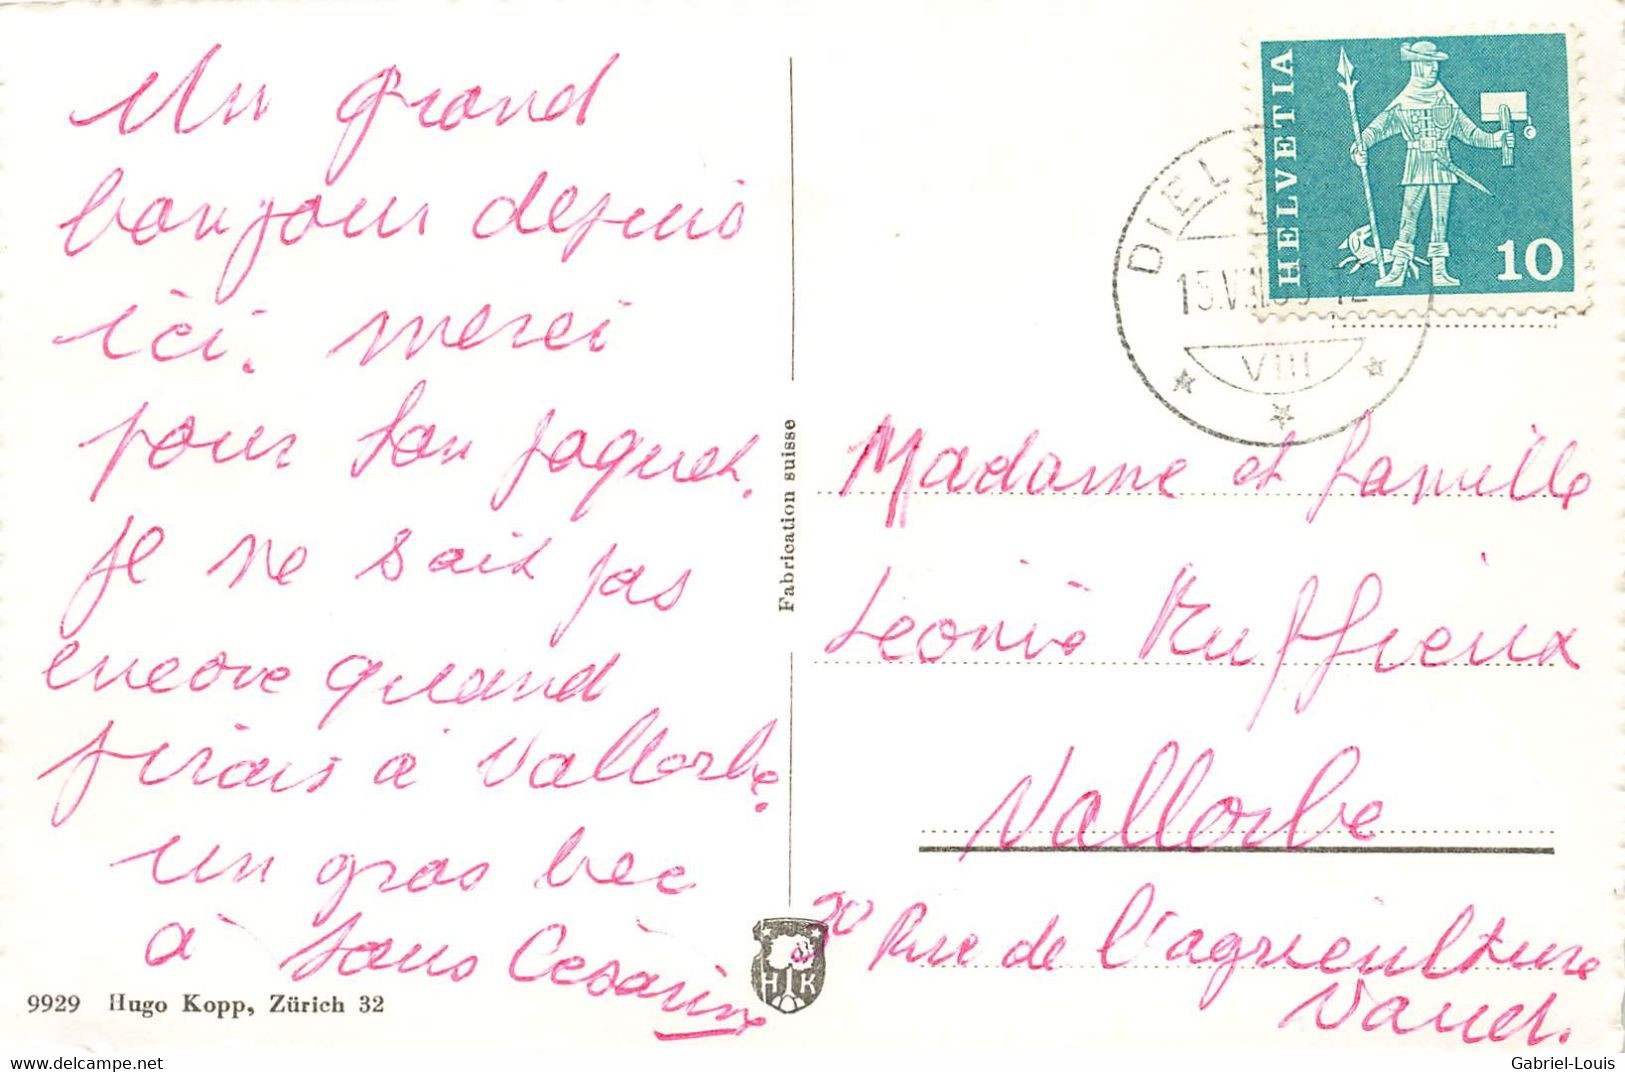 Un grand
bonjour depuis
ici. merci
pour ton paquet.
Je ne sait pas
encore quand
j'irais à Vallorbe.
un gros bec
à tous Césarine
9929 Hugo Kopp, Zürich 32
Fabrication suisse
HK
HELVETIA
10
DIEL
15.V
12
VIII
Madame et famille
Léonie Ruffieux
Vallorbe
20 Rue de l'agriculture
Vaud.
Gabriel-Louis
delcampe.net